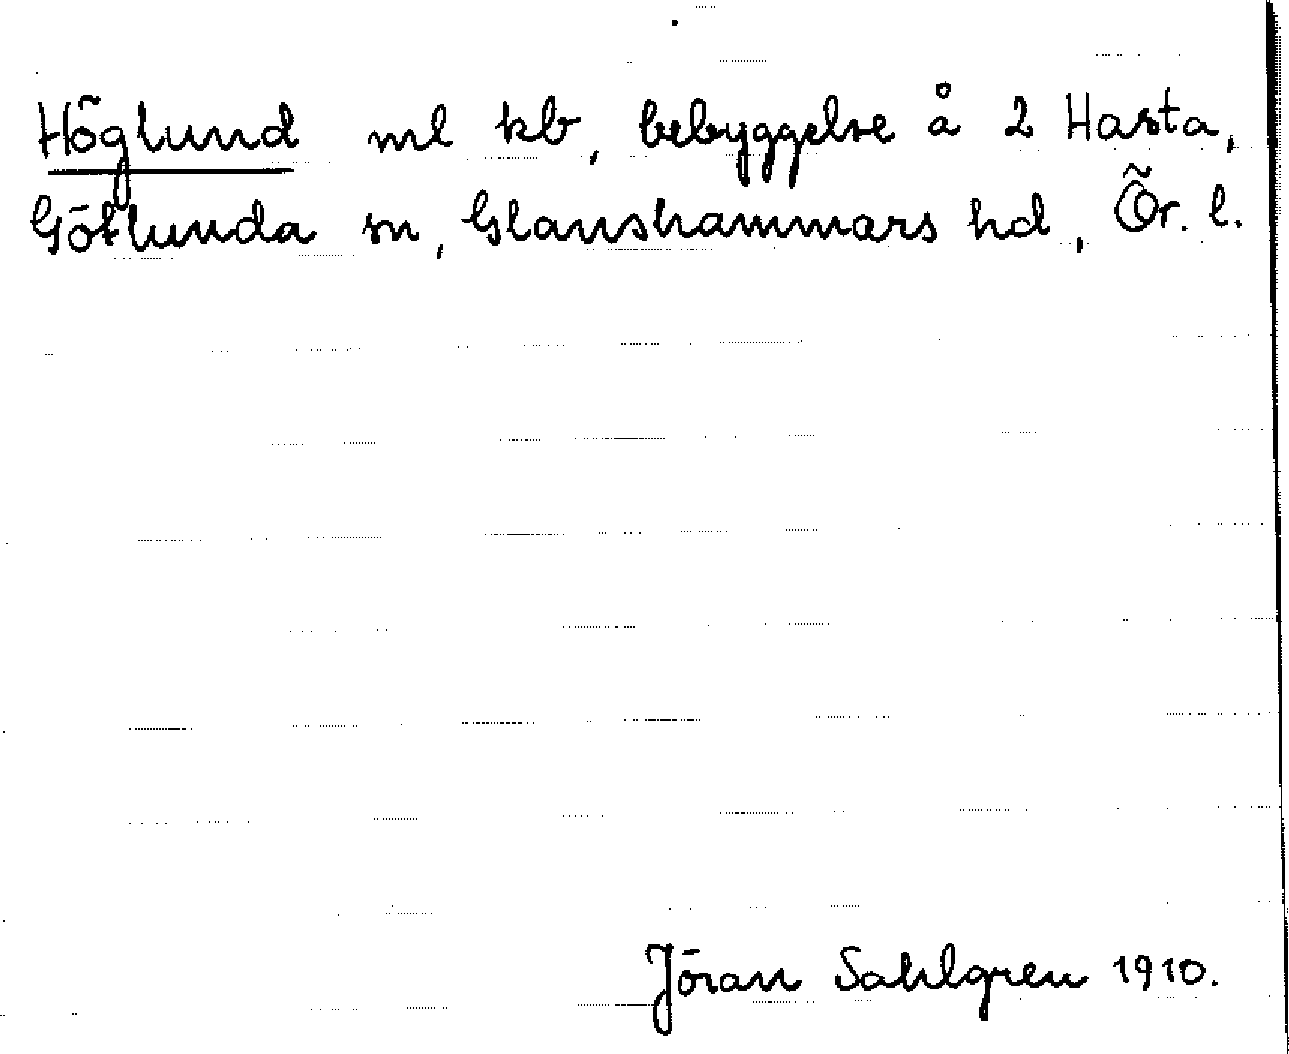 Höglund ml kb, bebyggelse å 2 Hasta,
Götlunda sn, Glanshammars hd, Ör. l.
Jöran Sahlgren 1910.